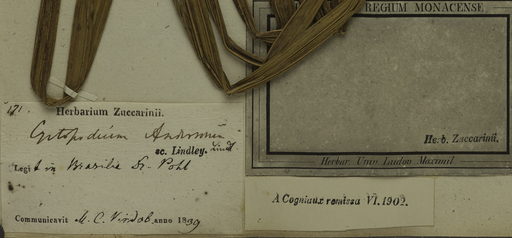 171
Herbarium Zuccarinii.
Cyrtopodium Andersonii
sc. Lindley. Lindl
Legit in Brasilia Dr. Pohl
Communicavit M. C. Vindob. anno 1839
REGIUM MONACENSE
Herb. Zuccarinii.
Herbar. Univ. Ludov. Maximil
A Cogniaux remissa VI. 1902.